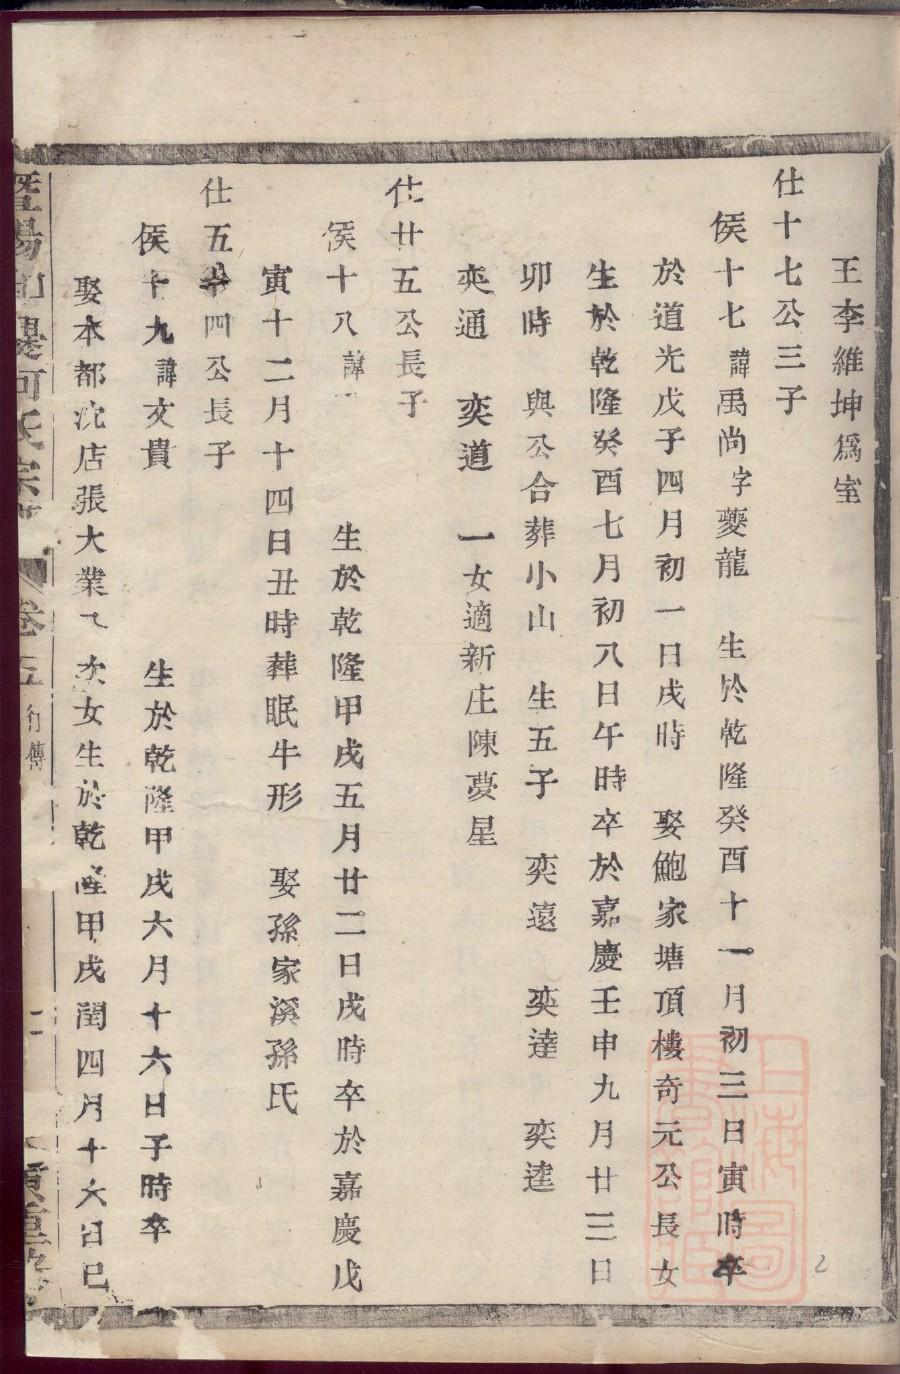 王李維坤爲室
仕十七公三子
侯十七諱禹尚字夔龍 生於乾隆癸酉十一月初三日寅時卒
於道光戊子四月初一日戌時 娶鮑家塘頂樓奇元公長女
生於乾隆癸酉七月初八日午時卒於嘉慶壬申九月廿三日
卯時 與公合葬小山 生五子 奕遠 奕達 奕逵
奕通 奕道 一女適新庄陳夢星
仕廿五公長子
侯十八諱 生於乾隆甲戌五月廿二日戌時卒於嘉慶戊
寅十二月十四日丑時葬眠牛形 娶孫家溪孫氏
仕五十四公長子
侯十九諱文貴 生於乾隆甲戌六月十六日子時卒
娶本都沈店張大業 次女生於乾隆甲戌閏四月十六日巳
暨陽 何氏宗
卷五 行傳